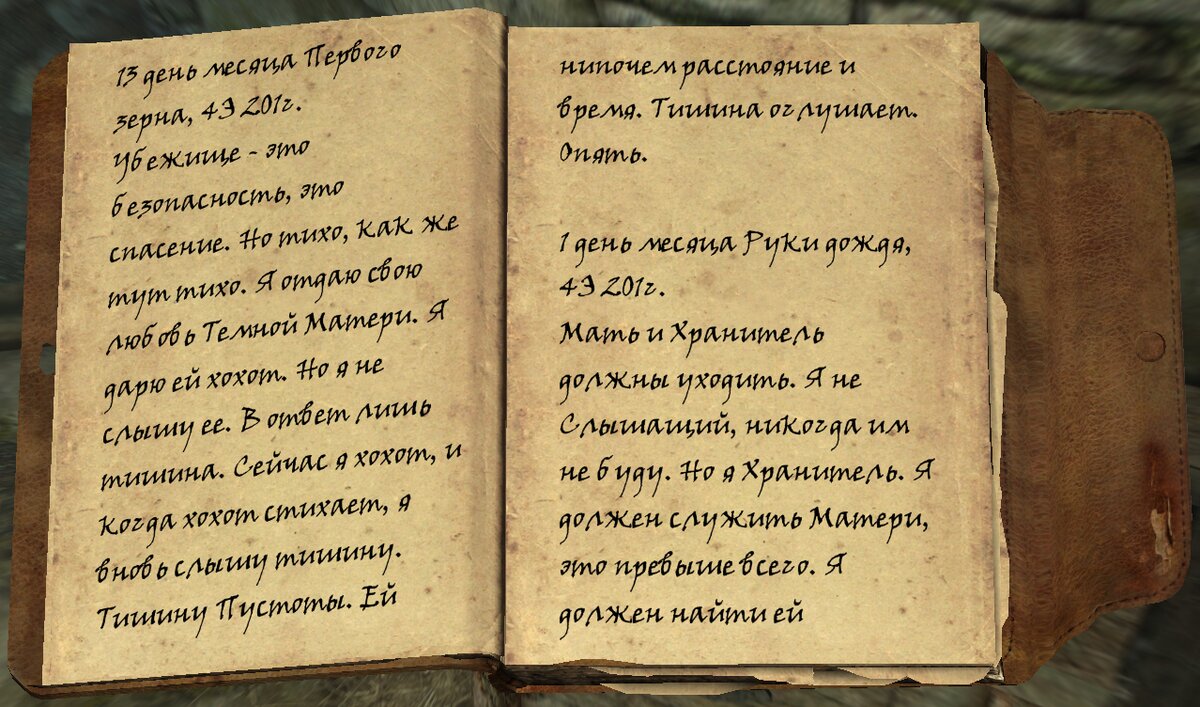 13 день месяца Первого
зерна, 4Э 201г.
Убежище - это
безопасность, это
спасение. Но тихо, как же
тут тихо. Я отдаю свою
любовь Темной Матери. Я
дарю ей хохот. Но я не
слышу ее. В ответ лишь
тишина. Сейчас я хохот, и
когда хохот стихает, я
вновь слышу тишину.
Тишину Пустоты. Ей
нипочем расстояние и
время. Тишина оглушает.
Опять.
1 день месяца Руки дождя,
4Э 201г.
Мать и Хранитель
должны уходить. Я не
Слышащий, никогда им
не буду. Но я Хранитель. Я
должен служить Матери,
это превыше всего. Я
должен найти ей